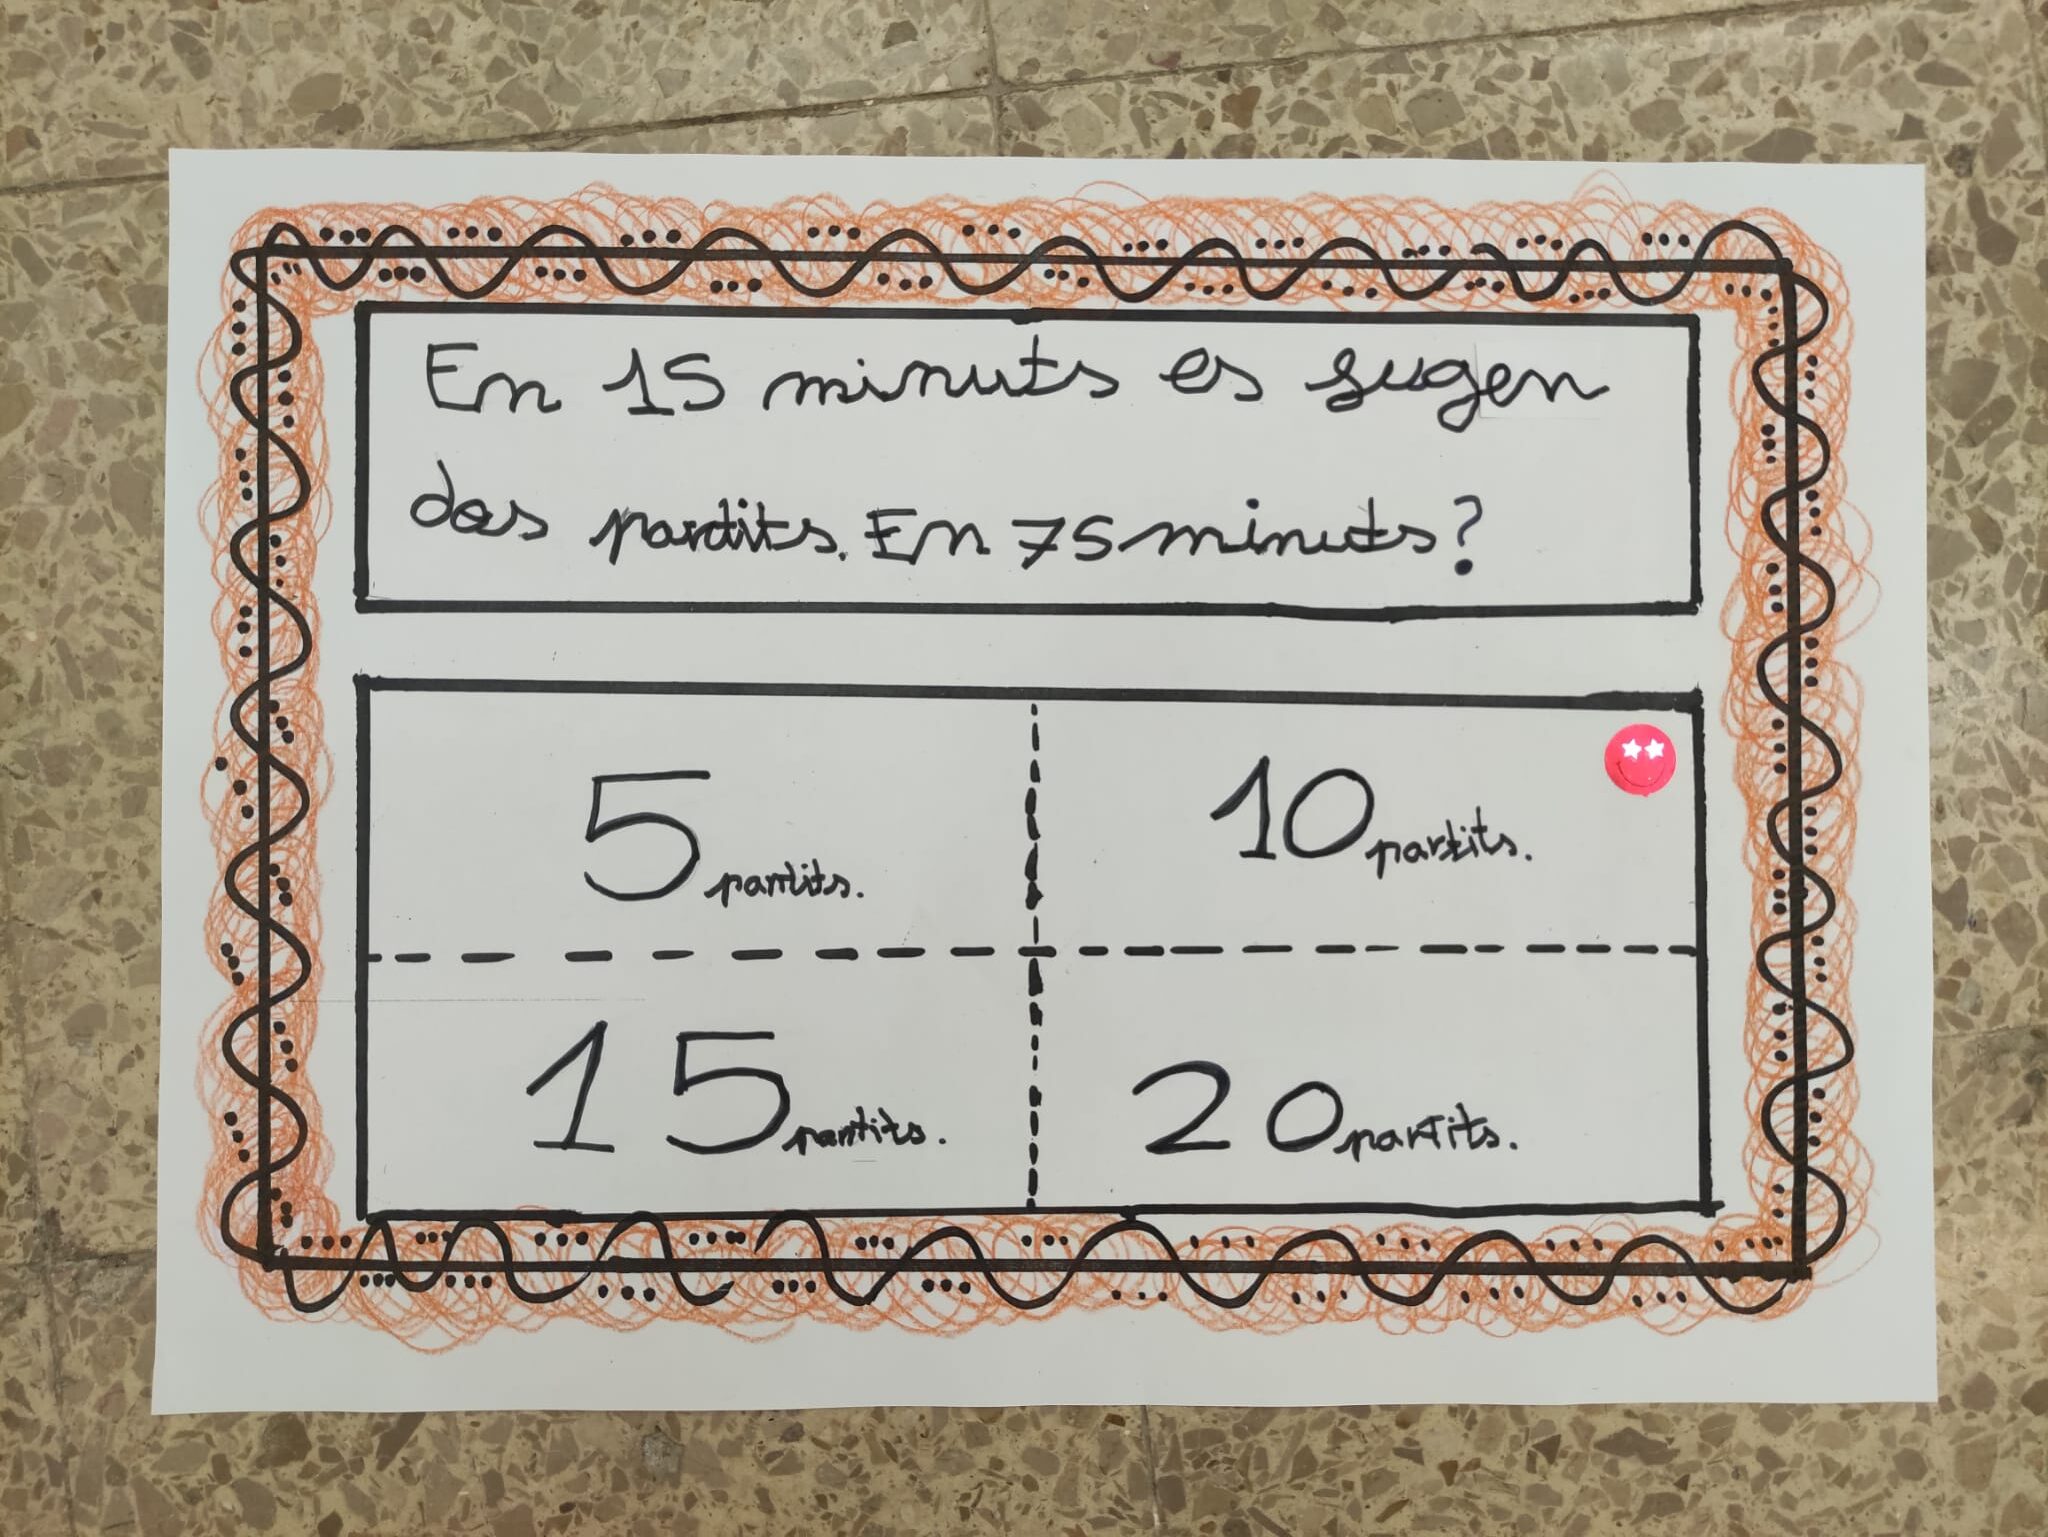 En 15 minuts es jugen
dos partits. En 75 minuts?
5 partits.
10 partits.
15 partits.
20 partits.